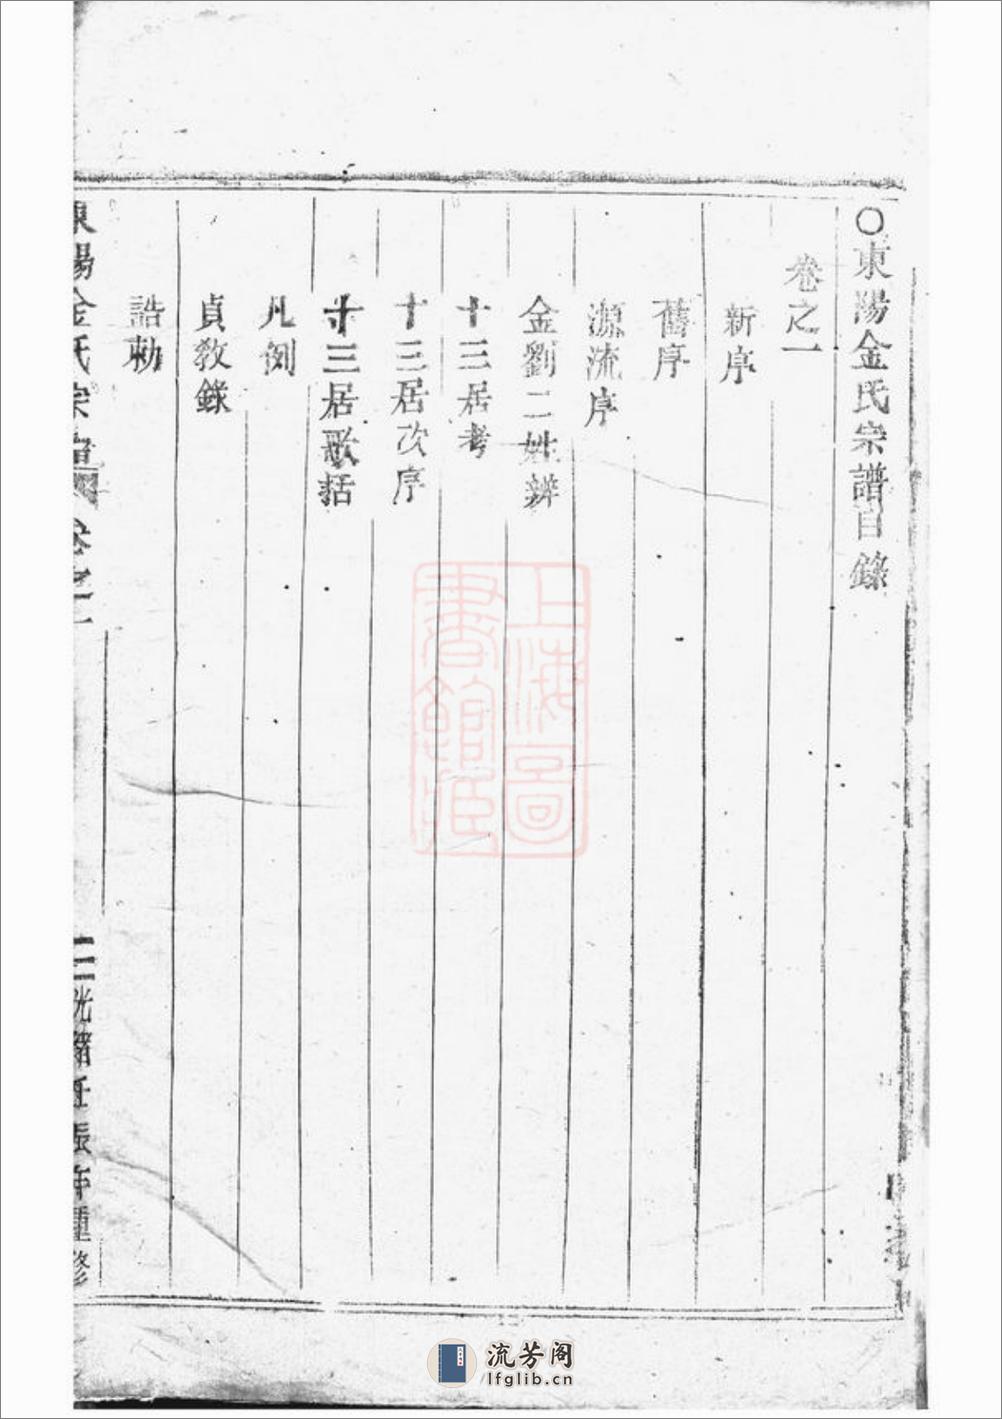 ○東陽金氏宗譜目錄
卷之一
新序
舊序
源流序
金劉二姓辨
十三居考
十三居次序
十三居歌括
凡例
貞教錄
誥勅
東陽金氏宗譜 卷之一
二 光緒壬辰年重修
上海圖
書館藏
流芳阁
lfglib.cn